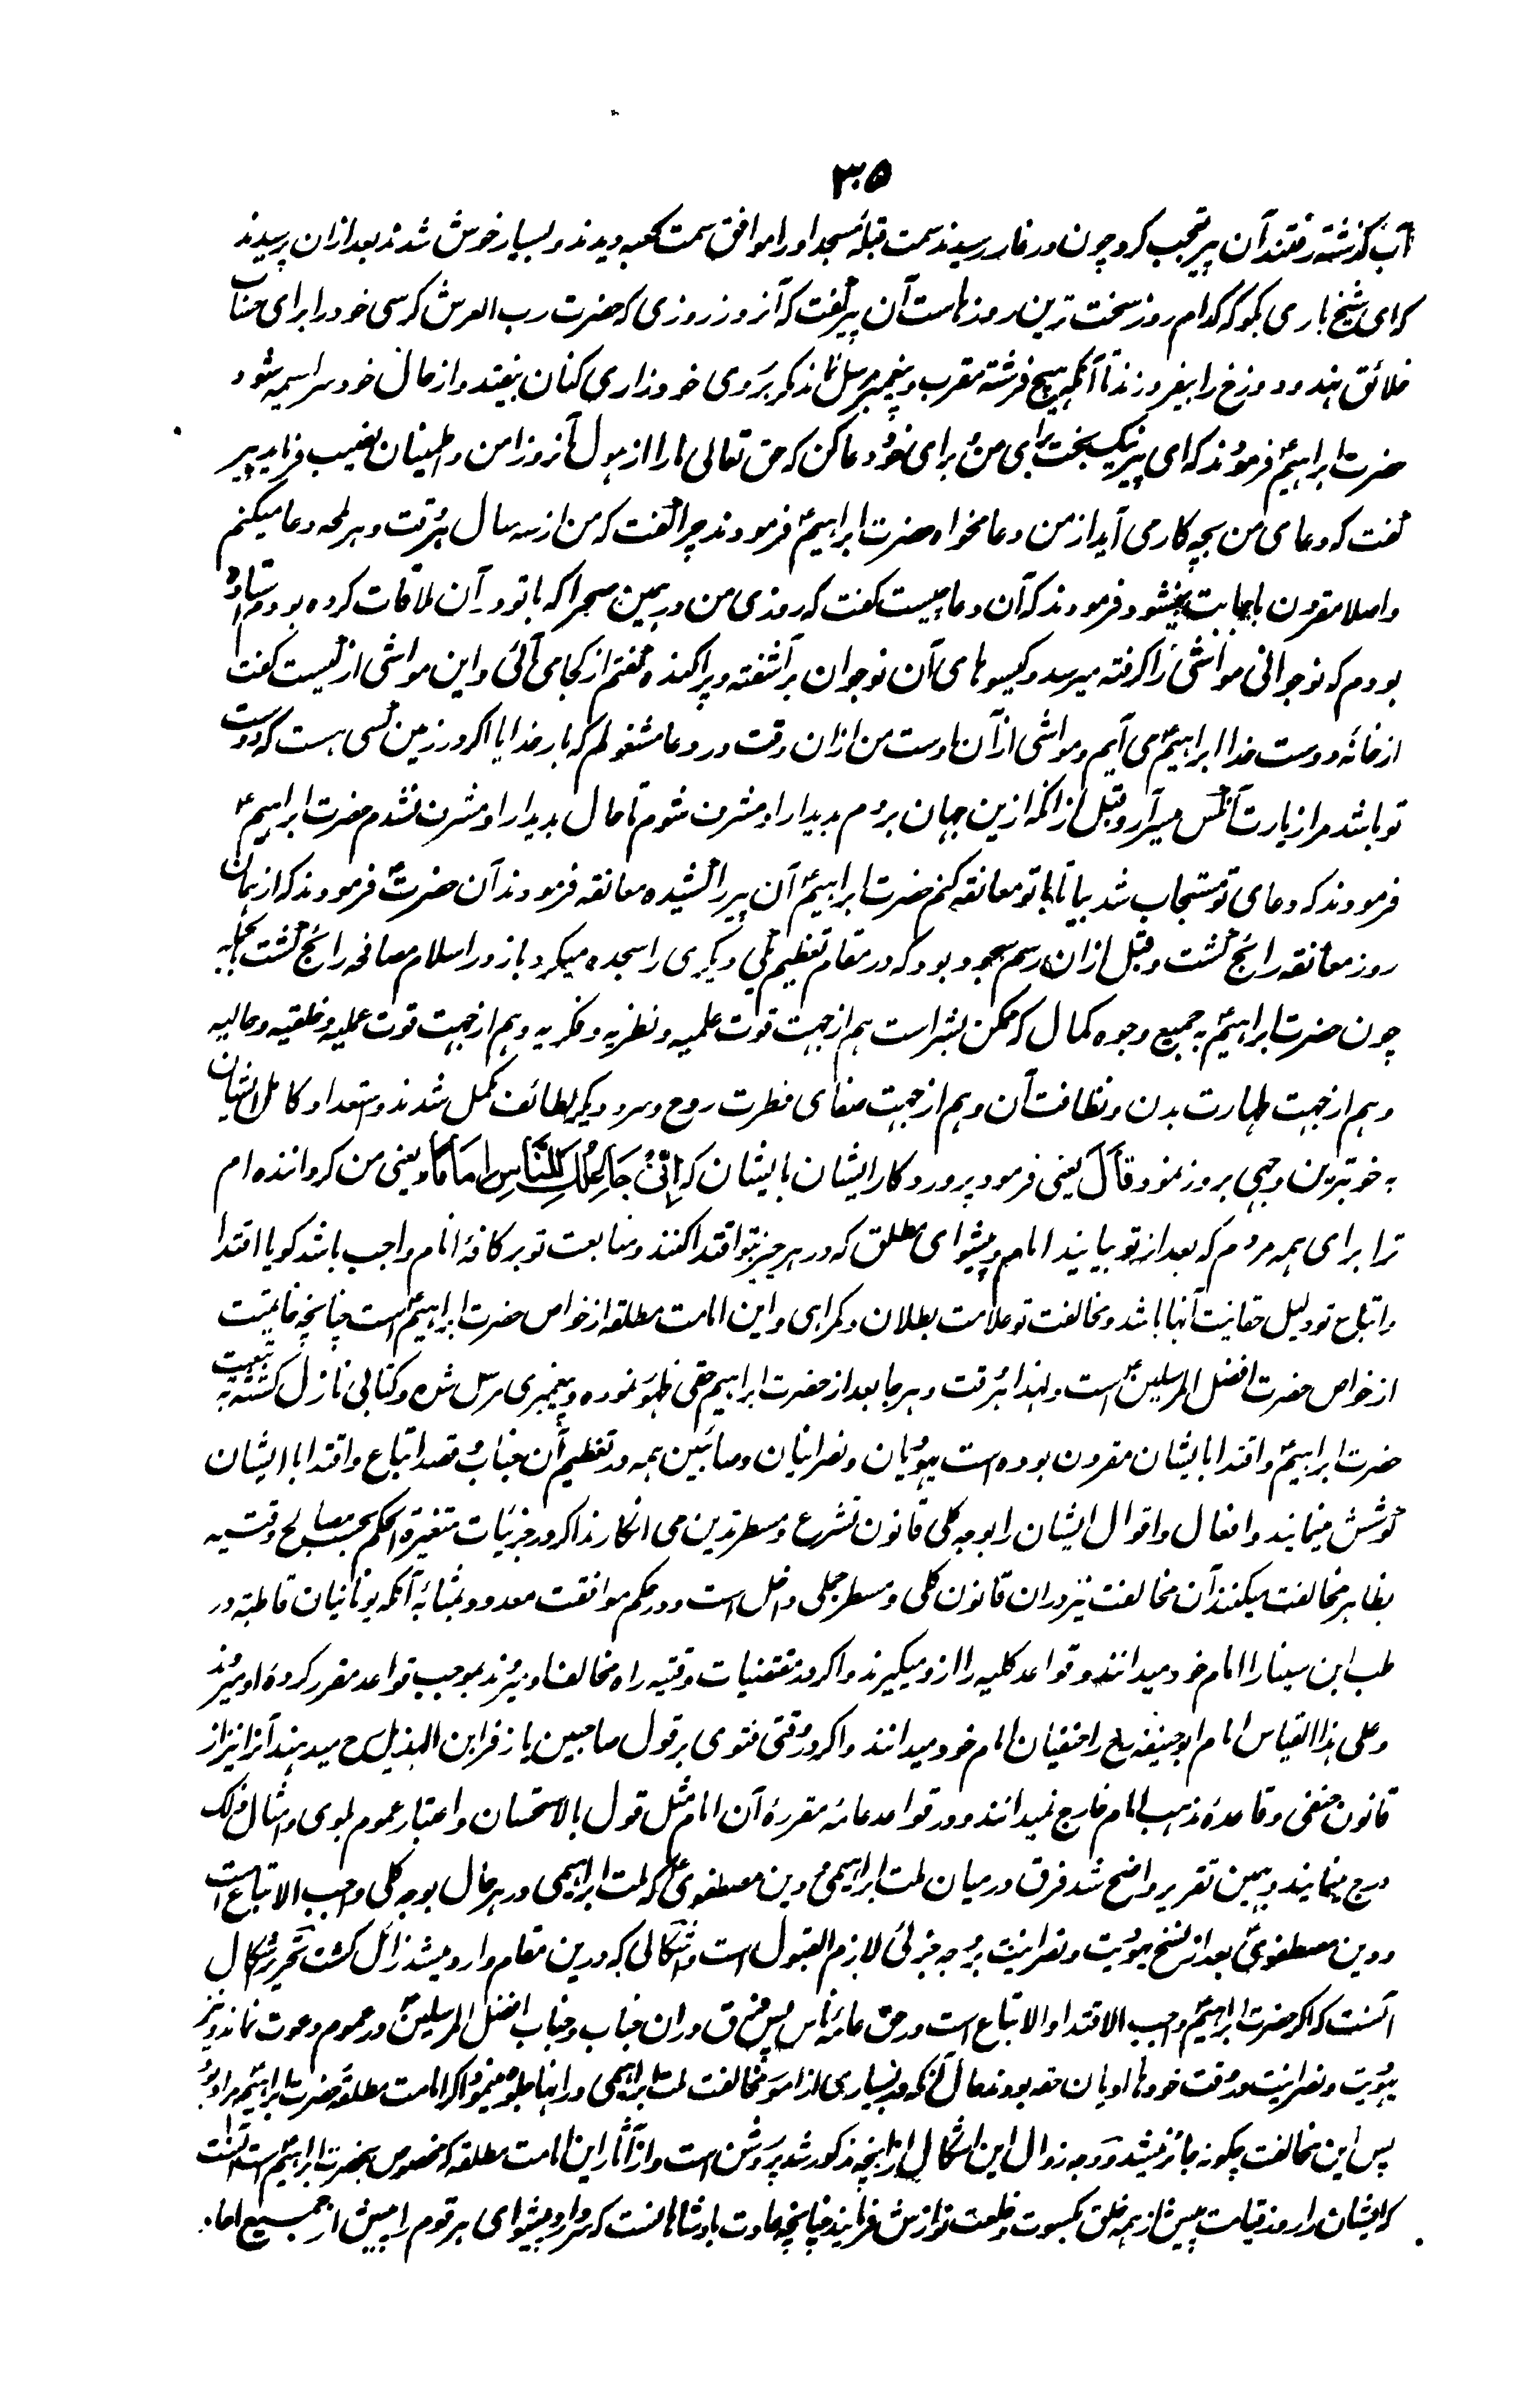 ۳۰۵
آب گذشته رفتند آن پیر تعجب کرد چون در غار رسیدند سمت قبلهٔ مسجد او را موافق سمت کعبه دیدند و بسیار خوش شدند بعد ازان پرسیدند
که ای شیخ باری بگو که کدام روز سخت ترین روزهاست آن پیر گفت که آنروز روزی که حضرت رب العرش کرسی خود را برای حساب
خلائق نهد و دوزخ را بیفروزند تا آنکه هیچ فرشته مقرب و پیغمبر مرسل نماند مگر بر وی خود زاری کنان بیفتد و از حال خود سراسیمه شود
حضرت ابراهیمؑ فرمودند که ای پیر نیک بخت برای من و برای خود دعا کن که حق تعالی ما را از هول آنروز امن و اطمینان نصیب فرماید پیر
گفت که دعای من بچه کار می آید از من دعا مخواه حضرت ابراهیمؑ فرمودند چرا گفت که من از سه سال هر وقت و هر لمحه دعا میکنم
و اصلا مقرون باجابت نمیشود فرمودند که آن دعا چیست گفت که روزی من در همین صحرا که با تو در آن ملاقات کرده بودم استاده
بودم که نوجوانی مواشی را گرفته میرسد و گیسوهای آن نوجوان بر آشفته و پراگنده گفتم از کجا می آئی و این مواشی از کیست گفت
از خانهٔ دوست خدا ابراهیمؑ می آیم و مواشی از آن اوست من ازان وقت در دعا مشغولم که بار خدایا اگر در زمین کسی هست که دوست
تو باشد مرا زیارت آنکس میسر آرد و قبل از آنکه ازین جهان بروم بدیدار او مشرف شوم تا حال بدیدار او مشرف نشدم حضرت ابراهیمؑ
فرمودند که دعای تو مستجاب شد بیا تا با تو معانقه کنم حضرت ابراهیمؑ آن پیر را کشیده معانقه فرمودند آن حضرتؐ فرمودند که از همان
روز معانقه رائج گشت و قبل ازان رسم سجود بود که در مقام تعظیم یکی دیگری را سجده میکرد باز در اسلام مصافحه رائج گشت بالجمله
چون حضرت ابراهیمؑ به جمیع وجوه کمال که ممکن بشر است هم از جهت قوت علمیه و نظریه و فکریه و هم از جهت قوت عملیه و خلقیه و حالیه
و هم از جهت طهارت بدن و نظافت آن و هم از جهت صفای فطرت روح و سر و دیگر لطائف مکمل شدند و استعداد کامل ایشان
به خوبترین وجهی بروز نمود قَالَ یعنی فرمود پروردگار ایشان بایشان که إِنِّي جَاعِلُكَ لِلنَّاسِ إِمَامًا یعنی من گرداننده ام
ترا برای همه مردم که بعد از تو بیایند امام و پیشوای مطلق که در هر چیز بتو اقتدا کنند و متابعت تو بر کافهٔ انام واجب باشد گویا اقتدا
و اتباع تو دلیل حقانیت آنها باشد و مخالفت تو علامت بطلان و گمراهی و این امامت مطلقه از خواص حضرت ابراهیمؑ است چنانچه خاتمیت
از خواص حضرت افضل المرسلینؐ است و لهذا هر وقت و هر جا بعد از حضرت ابراهیم حقی ظهور نموده و پیغمبری مرسل شده و کتابی نازل گشته به تبعیت
حضرت ابراهیمؑ و اقتدا بایشان مقرون بوده است یهودیان و نصرانیان و صابئین همه در تعظیم آن جناب و قصد اتباع و اقتدا با ایشان
کوشش مینمایند و افعال و اقوال ایشان را بوجه کلی قانون تشرع و مسطر تدین می انگارند اگر در جزئیات متغیرة الحکم بحسب مصالح وقتیه
بظاهر مخالفت میکنند آن مخالفت نیز دران قانون کلی و مسطر جملی داخل است و در حکم موافقت معدود بمثابهٔ آنکه یونانیان قاطبه در
طب ابن سینا را امام خود میدانند و قواعد کلیه را ازو میگیرند و اگر در مقتضیات وقتیه راه مخالف او میروند بموجب قواعد مقرر کردهٔ او میروند
و علی هذا القیاس امام ابو حنیفه رح را حنفیان امام خود میدانند و اگر در وقتی فتوی بر قول صاحبین یا زفر ابن الهذیل رح میدهند آنرا نیز از
قانون حنفی و قاعدهٔ مذهب امام خارج نمیدانند و در قواعد عامه مقررهٔ آن امام مثل قول بالاستحسان و اعتبار عموم بلوی و امثال ذلک
درج مینمایند و بهمین تقریر واضح شد فرق در میان ملت ابراهیمی و دین مصطفویؐ که ملت ابراهیمی در هر حال بوجه کلی واجب الاتباع است
و دین مصطفویؐ بعد از نسخ یهودیت و نصرانیت بوجه جزئی لازم القبول است و اشکالی که درین مقام وارد میشد زائل گشت تحریر اشکال
آنست که اگر حضرت ابراهیمؑ واجب الاقتدا و الاتباع است در حق عامهٔ ناس پس فرق دران جناب و جناب افضل المرسلینؐ در عموم دعوت نماند و نیز
یهودیت و نصرانیت در وقت خودها ادیان حقه بودند حال آنکه در بسیاری از امور مخالفت ملت ابراهیمی در انها جلوه مینمود اگر امامت مطلقه حضرت ابراهیمؑ را بود
پس این مخالفت چگونه جائز میشد و وجه زوال این اشکال از آنچه مذکور شد پر روشن است و از آثار این امامت مطلقه که مخصوص بحضرت ابراهیمؑ است آنست
که ایشان را روز قیامت پیش از همه خلق بکسوت و خلعت نوازش فرمایند چنانچه عادت بادشاهانست که سردار و پیشوای هر قوم را پیش از جمیع احاد